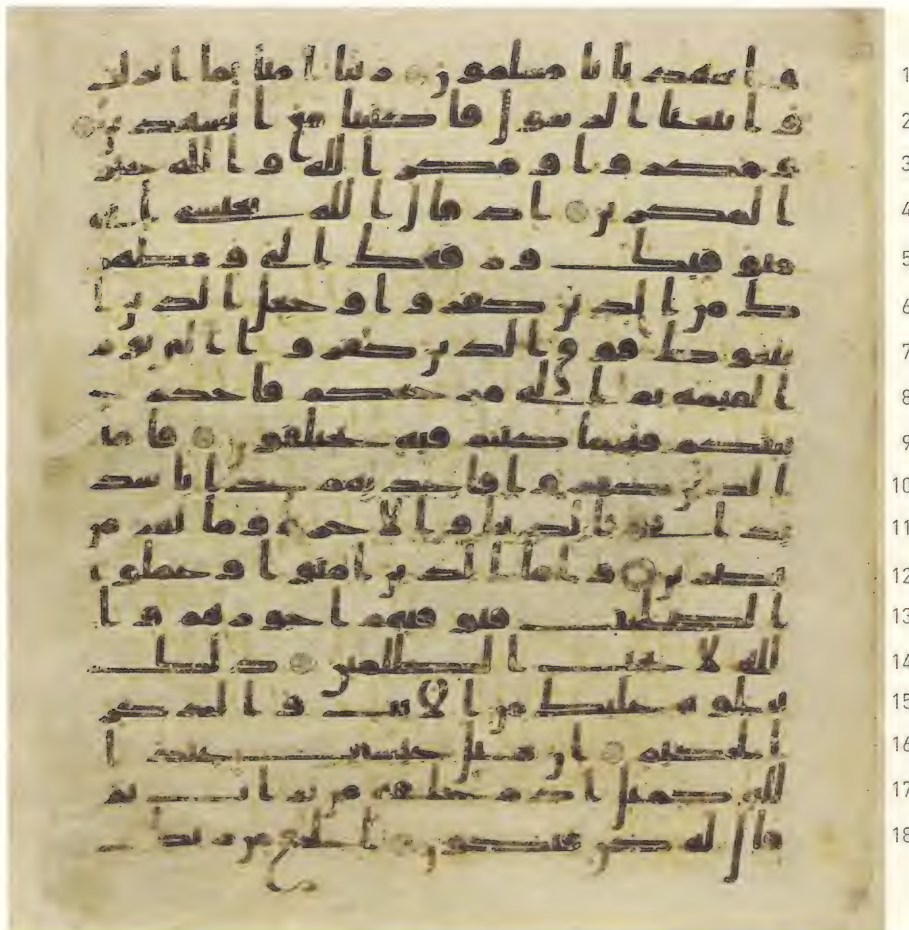 1 واشهد بانا مسلمون ربنا امنا بما انزلت
2 واتبعنا الرسول فاكتبنا مع الشهدين
3 ومكروا ومكر الله والله خير
4 المكرين اذ قال الله يعيسى اني
5 متوفيك ورفعك الي ومطهر
6 ك من الذين كفروا وجعل الذين ا
7 تبعوك فوق الذين كفروا الى يوم
8 القيمه ثم الي مرجعكم فاحكم ب
9 ينكم فيما كنتم فيه تختلفون فاما
10 الذين كفروا فاعذبهم عذابا شد
11 يدا في الدنيا والاخره وما لهم من
12 نصرين واما الذين امنوا وعملوا
13 الصلحت فيوفيهم اجورهم وا
14 لله لا يحب الظلمين ذلك
15 نتلوه عليك من الايت والذكر
16 الحكيم ان مثل عيسى عند ا
17 لله كمثل ادم خلقه من تراب ثم
18 قال له كن فيكون الحق من ربك